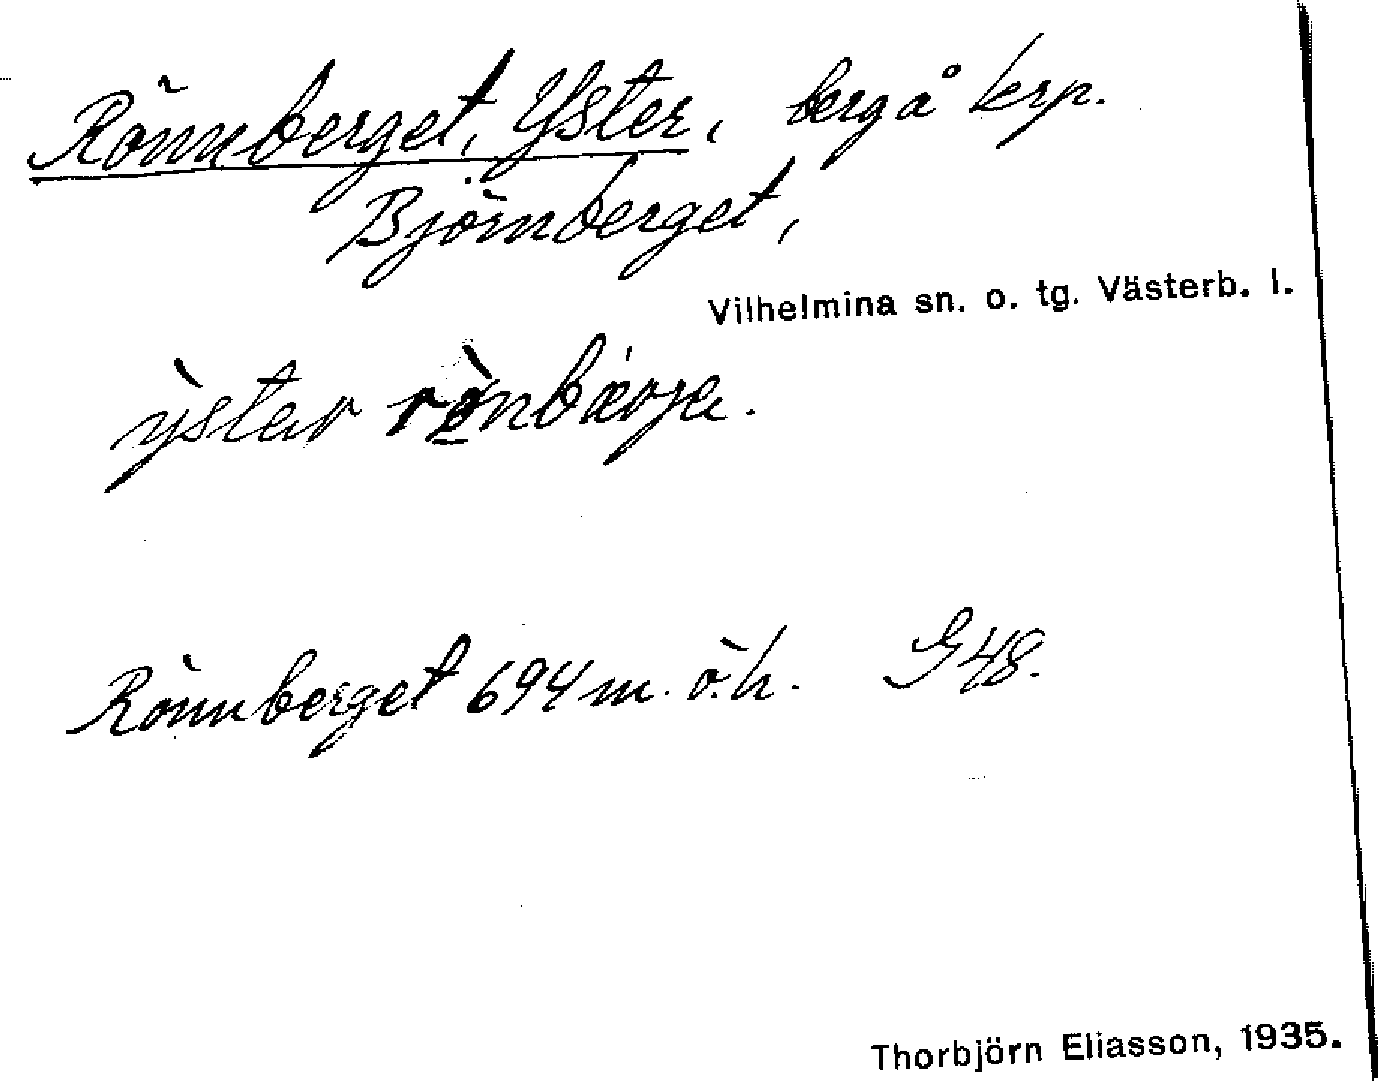 Rönnberget, Yster, berg å krp.
Björnberget,
Vilhelmina sn. o. tg. Västerb. l.
ỳstar rò̱nbærjɐ.
Rönnberget 694 m. ö.h. G48.
Thorbjörn Eliasson, 1935.